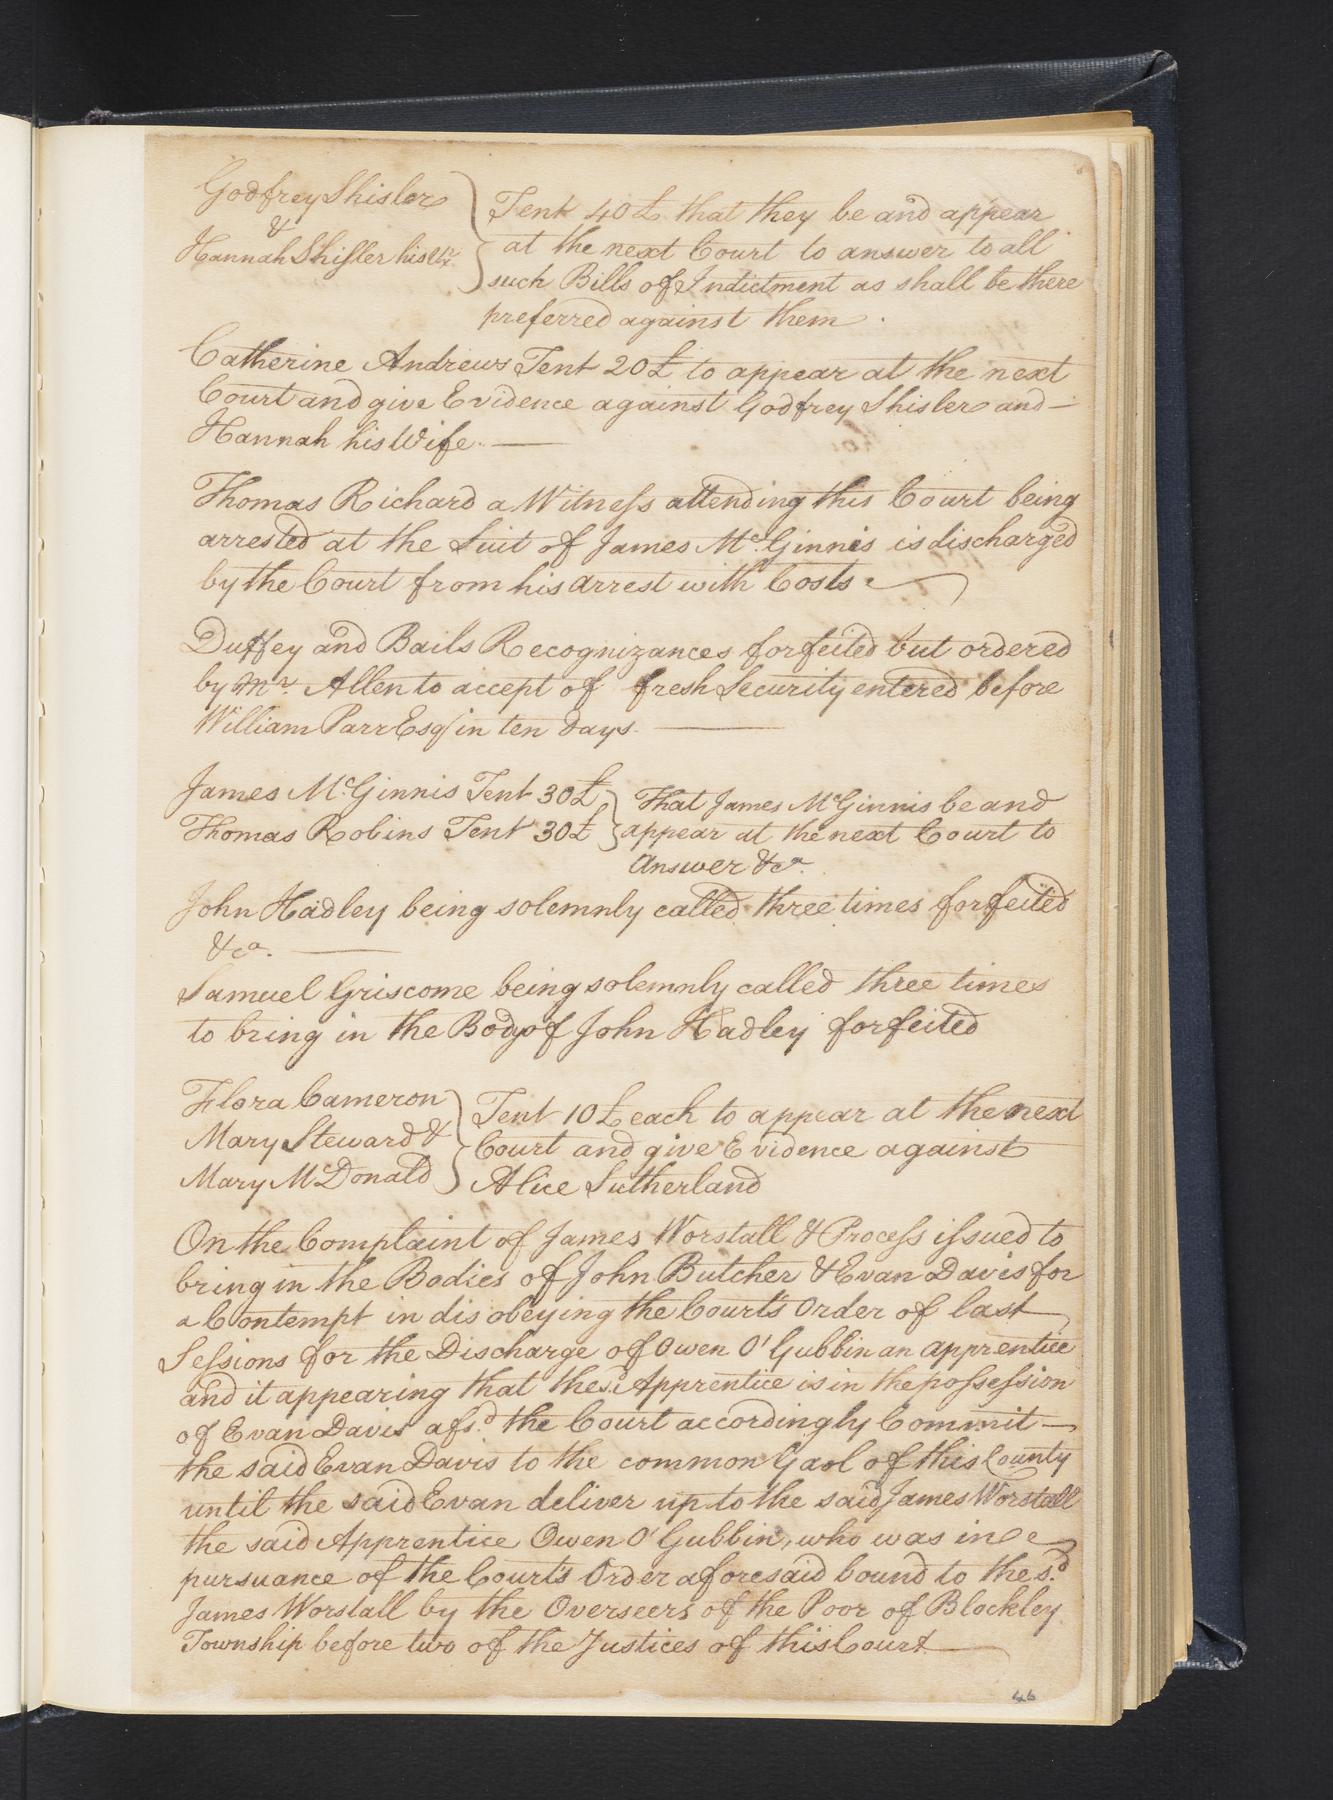 Godfrey Shisler
&
Hannah Shisler his Ux
Tent 40£ that they be and appear
at the next Court to answer to all
such Bills of Indictment as shall be there
preferred against them.
Catherine Andrews Tent 20£ to appear at the next
Court and give Evidence against Godfrey Shisler and —
Hannah his Wife. —
Thomas Richard a Witness attending this Court being
arrested at the Suit of James Mc.Ginnis is discharged
by the Court from his arrest with Costs
Duffey and Bails Recognizances forfeited but ordered
by Mr. Allen to accept of fresh Security entered before
William Parr Esqr in ten days. —
James Mc.Ginnis Tent 30£
Thomas Robins Tent 30£
That James McGinnis be and
appear at the next Court to
answer &ca.
John Hadley being solemnly called three times forfeited
&ca. —
Samuel Griscome being solemnly called three times
to bring in the Body of John Hadley forfeited
Flora Cameron
Mary Steward &
Mary McDonald
Tent 10£ each to appear at the next
Court and give Evidence against
Alice Sutherland
On the Complaint of James Worstall & Process issued to
bring in the Bodies of John Butcher & Evan Davis for
a Contempt in disobeying the Court's Order of last
Sessions for the Discharge of Owen O'Gubbin an apprentice
and it appearing that the sd. Apprentice is in the possession
of Evan Davis afsd. the Court accordingly Commit —
the said Evan Davis to the common Gaol of this County
until the said Evan deliver up to the said James Worstall
the said Apprentice Owen O'Gubbin, who was in
pursuance of the Court's Order aforesaid bound to the sd.
James Worstall by the Overseers of the Poor of Blockley
Township before two of the Justices of this Court —
46